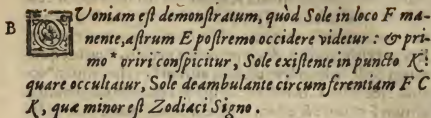 B QVoniam eſt demonſtratum, quòd Sole in loco F ma-
nente, aſtrum E poſtremo occidere videtur: & pri-
mo * oriri conſpicitur, Sole exiſtente in puncto K:
quare occultatur, Sole deambulante circumferentiam F C
K, quæ minor eſt Zodiaci Signo.